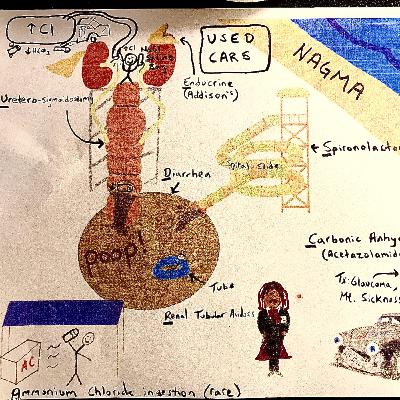 ↑Cl
↓HCO3
USED
CARS
NAGMA
Endocrine
(Addison's)
Uretero-sigmoidostomy
Diarrhea
Spiral Slide
Spironolacto
poop!
Tube
Renal Tubular Acidosis
Carbonic Anhy
(Acetazolamid
Tx: Glaucoma,
Mt. Sickness
AC
Ammonium Chloride ingestion (rare)